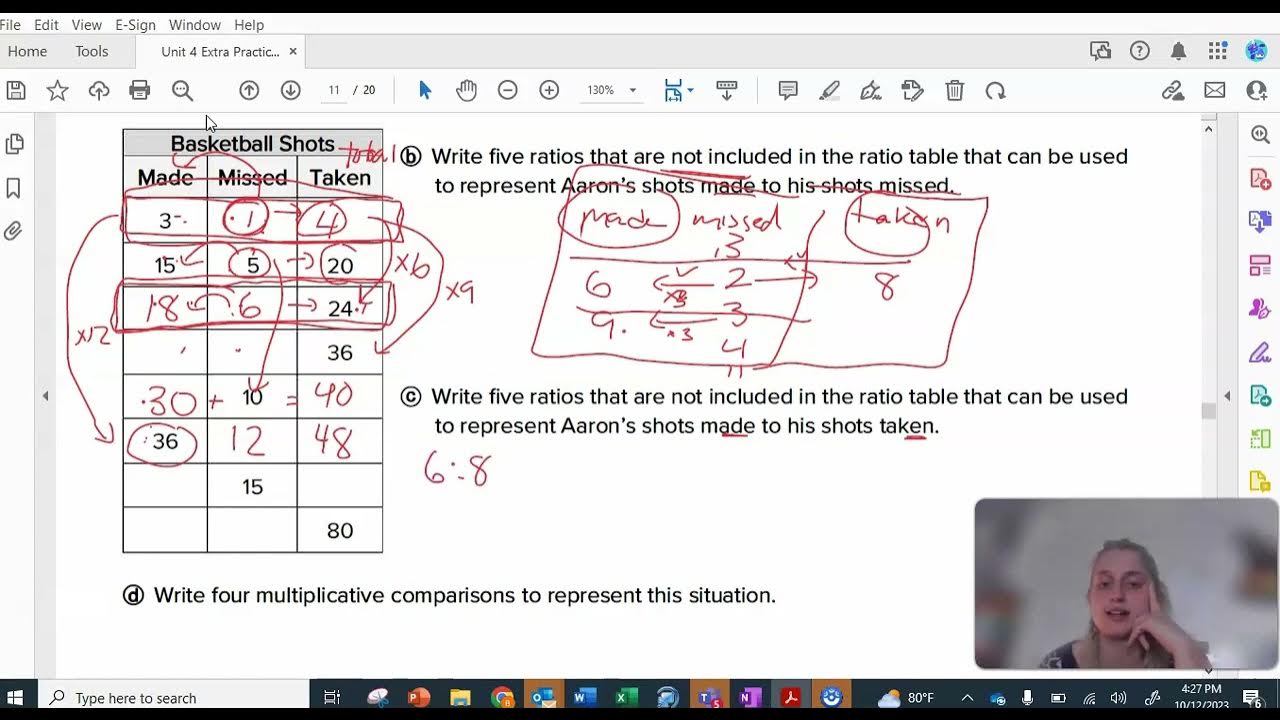 File Edit View E-Sign Window Help
Home Tools Unit 4 Extra Practic... ×
11 / 20 130%
Basketball Shots total
Made Missed Taken
3 1 4
15 5 20
18 6 24
36
30 + 10 = 40
36 12 48
15
80
×6
×9
×12
b Write five ratios that are not included in the ratio table that can be used
to represent Aaron's shots made to his shots missed.
made missed taken
6 2 8
9 3
×3
4
c Write five ratios that are not included in the ratio table that can be used
to represent Aaron's shots made to his shots taken.
6:8
d Write four multiplicative comparisons to represent this situation.
Type here to search
80°F
4:27 PM
10/12/2023
6